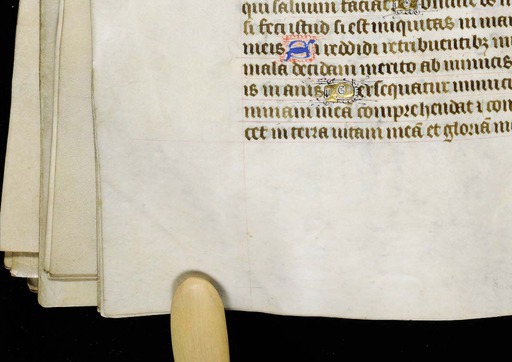 qui saluum faciat Domine de
si feci istud si est iniquitas in ma
meis Si reddidi retribuentibz m
mala decidam merito ab inimicis
is inanis Persequatur inimic
animam meã comprehendat i con
cet in terra uitam meã et gloriã m